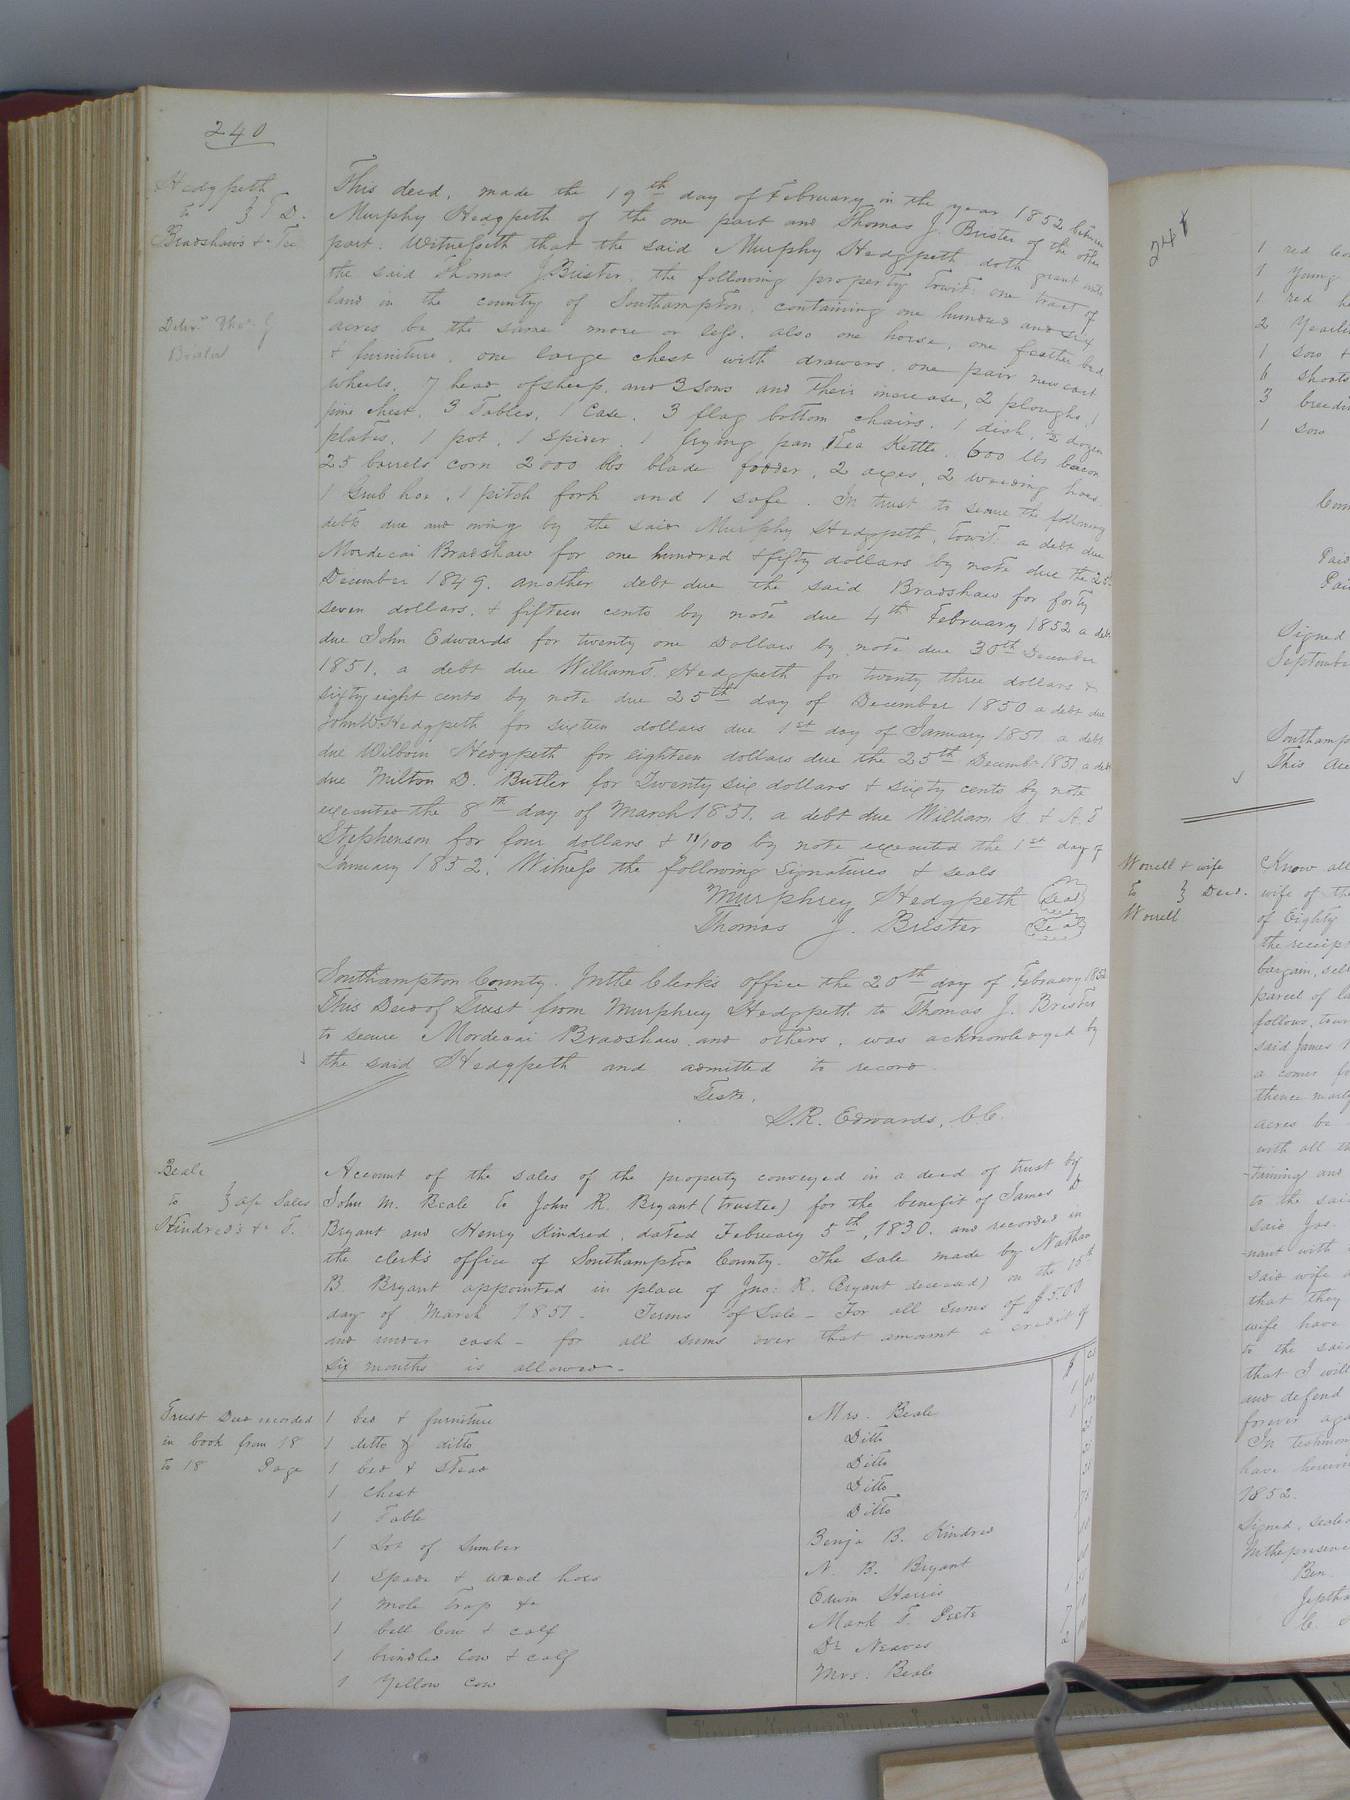 240
Hedgpeth
to } T D.
Bradshaw's &c Tee
Deliv.d Tho.s J
This deed, made the 19th day of February in the year 1852 between
Murphy Hedgpeth of the one part and Thomas J. Brister of the other
part. Witnesseth that the said Murphy Hedgpeth doth grant unto
the said Thomas J. Brister, the following property towit: one tract of
land in the county of Southampton, containing one hundred and six
acres be the same more or less, also one horse, one feather bed
& furniture, one large chest with drawers, one pair new cart
wheels, 7 head of sheep, and 3 sows and their increase, 2 ploughs, 1
pine chest, 3 Tables, 1 Case, 3 flag bottom chairs, 1 dish, ½ dozen
plates, 1 pot, 1 spider, 1 frying pan, 1 Tea Kettle, 600 lbs bacon
25 barrels corn 2000 lbs blade fodder, 2 axes, 2 weeding hoes
1 Grub hoe, 1 pitch fork and 1 safe. In trust to secure the following
debts due and owing by the said Murphy Hedgpeth, towit: a debt due
Mordecai Bradshaw for one hundred & fifty dollars by note due the 25th
December 1849. another debt due the said Bradshaw for forty
seven dollars, & fifteen cents by note due 4th February 1852 a debt
due John Edwards for twenty one Dollars by note due 30th December
1851, a debt due William T. Hedgpeth for twenty three dollars &
sixty eight cents by note due 25th day of December 1850 a debt due
John W. Hedgpeth for sixteen dollars due 1st day of January 1851 a debt
due Hedgpeth for eighteen dollars due the 25th December 1851 a debt
due Milton D. Butler for Twenty six dollars & sixty cents by note
executed the 8th day of March 1851, a debt due William G. & A. T
Stephenson for four dollars & 11/100 by note executed the 1st day of
January 1852. Witness the following signatures & seals
Murphrey Hedgpeth (Seal)
Thomas J. Brister (Seal)
Southampton County. In the Clerk's office the 20th day of February 1852
This Deed of Trust from Murphrey Hedgpeth to Thomas J. Brister
to secure Mordecai Bradshaw and others, was acknowledged by
the said Hedgpeth and admitted to record.
Teste,
L.R. Edwards, C.C.
Beale
to } a/c Sales
Kindred's &c T.
Account of the sales of the property conveyed in a deed of trust by
John M. Beale to John R. Bryant (trustee) for the benefit of James D
Bryant and Henry Kindred, dated February 5th, 1830. and recorded in
the clerk's office of Southampton County. The sale made by Nathan
B. Bryant appointed in place of Jno: R. Bryant deceased) on the 15th
day of March 1851 - Terms of Sale - For all Sums of $5.00
and under cash - for all sums over that amount a credit of
six months is allowed -
$ cs
Trust Deed recorded
in book from 18
to 18 Page
1 bed & furniture Mrs. Beale
1 ditto & ditto Ditto
1 bed & stead Ditto
1 chest Ditto
1 Table Ditto
1 Lot of Lumber Benja B. Kindred
1 Spade & weed hoes N. B. Bryant
1 mole trap &c Edwin Harris
1 bell Cow & calf Mark T. Peete
1 brindled Cow & calf Dr Neaves
1 Yellow Cow Mrs: Beale
241
1 red
1 young
1 red
2
1 sow &
6 shoats
3
1 sow
Paid
Signed
September
This
Worrell & wife
to } Deed.
Worrell
Know all
wife of the
of Eighty
the receipt
bargain, sell
parcel of la
follows, tow
said James
a corner
thence
acres be
with all th
taining and
to the said
said Jas.
nant with
said wife
that they
wife have
to the said
that I will
and defend
forever aga
In testimon
have hereun
1852.
Signed, sealed
In the presence
Ben.
Jeptha